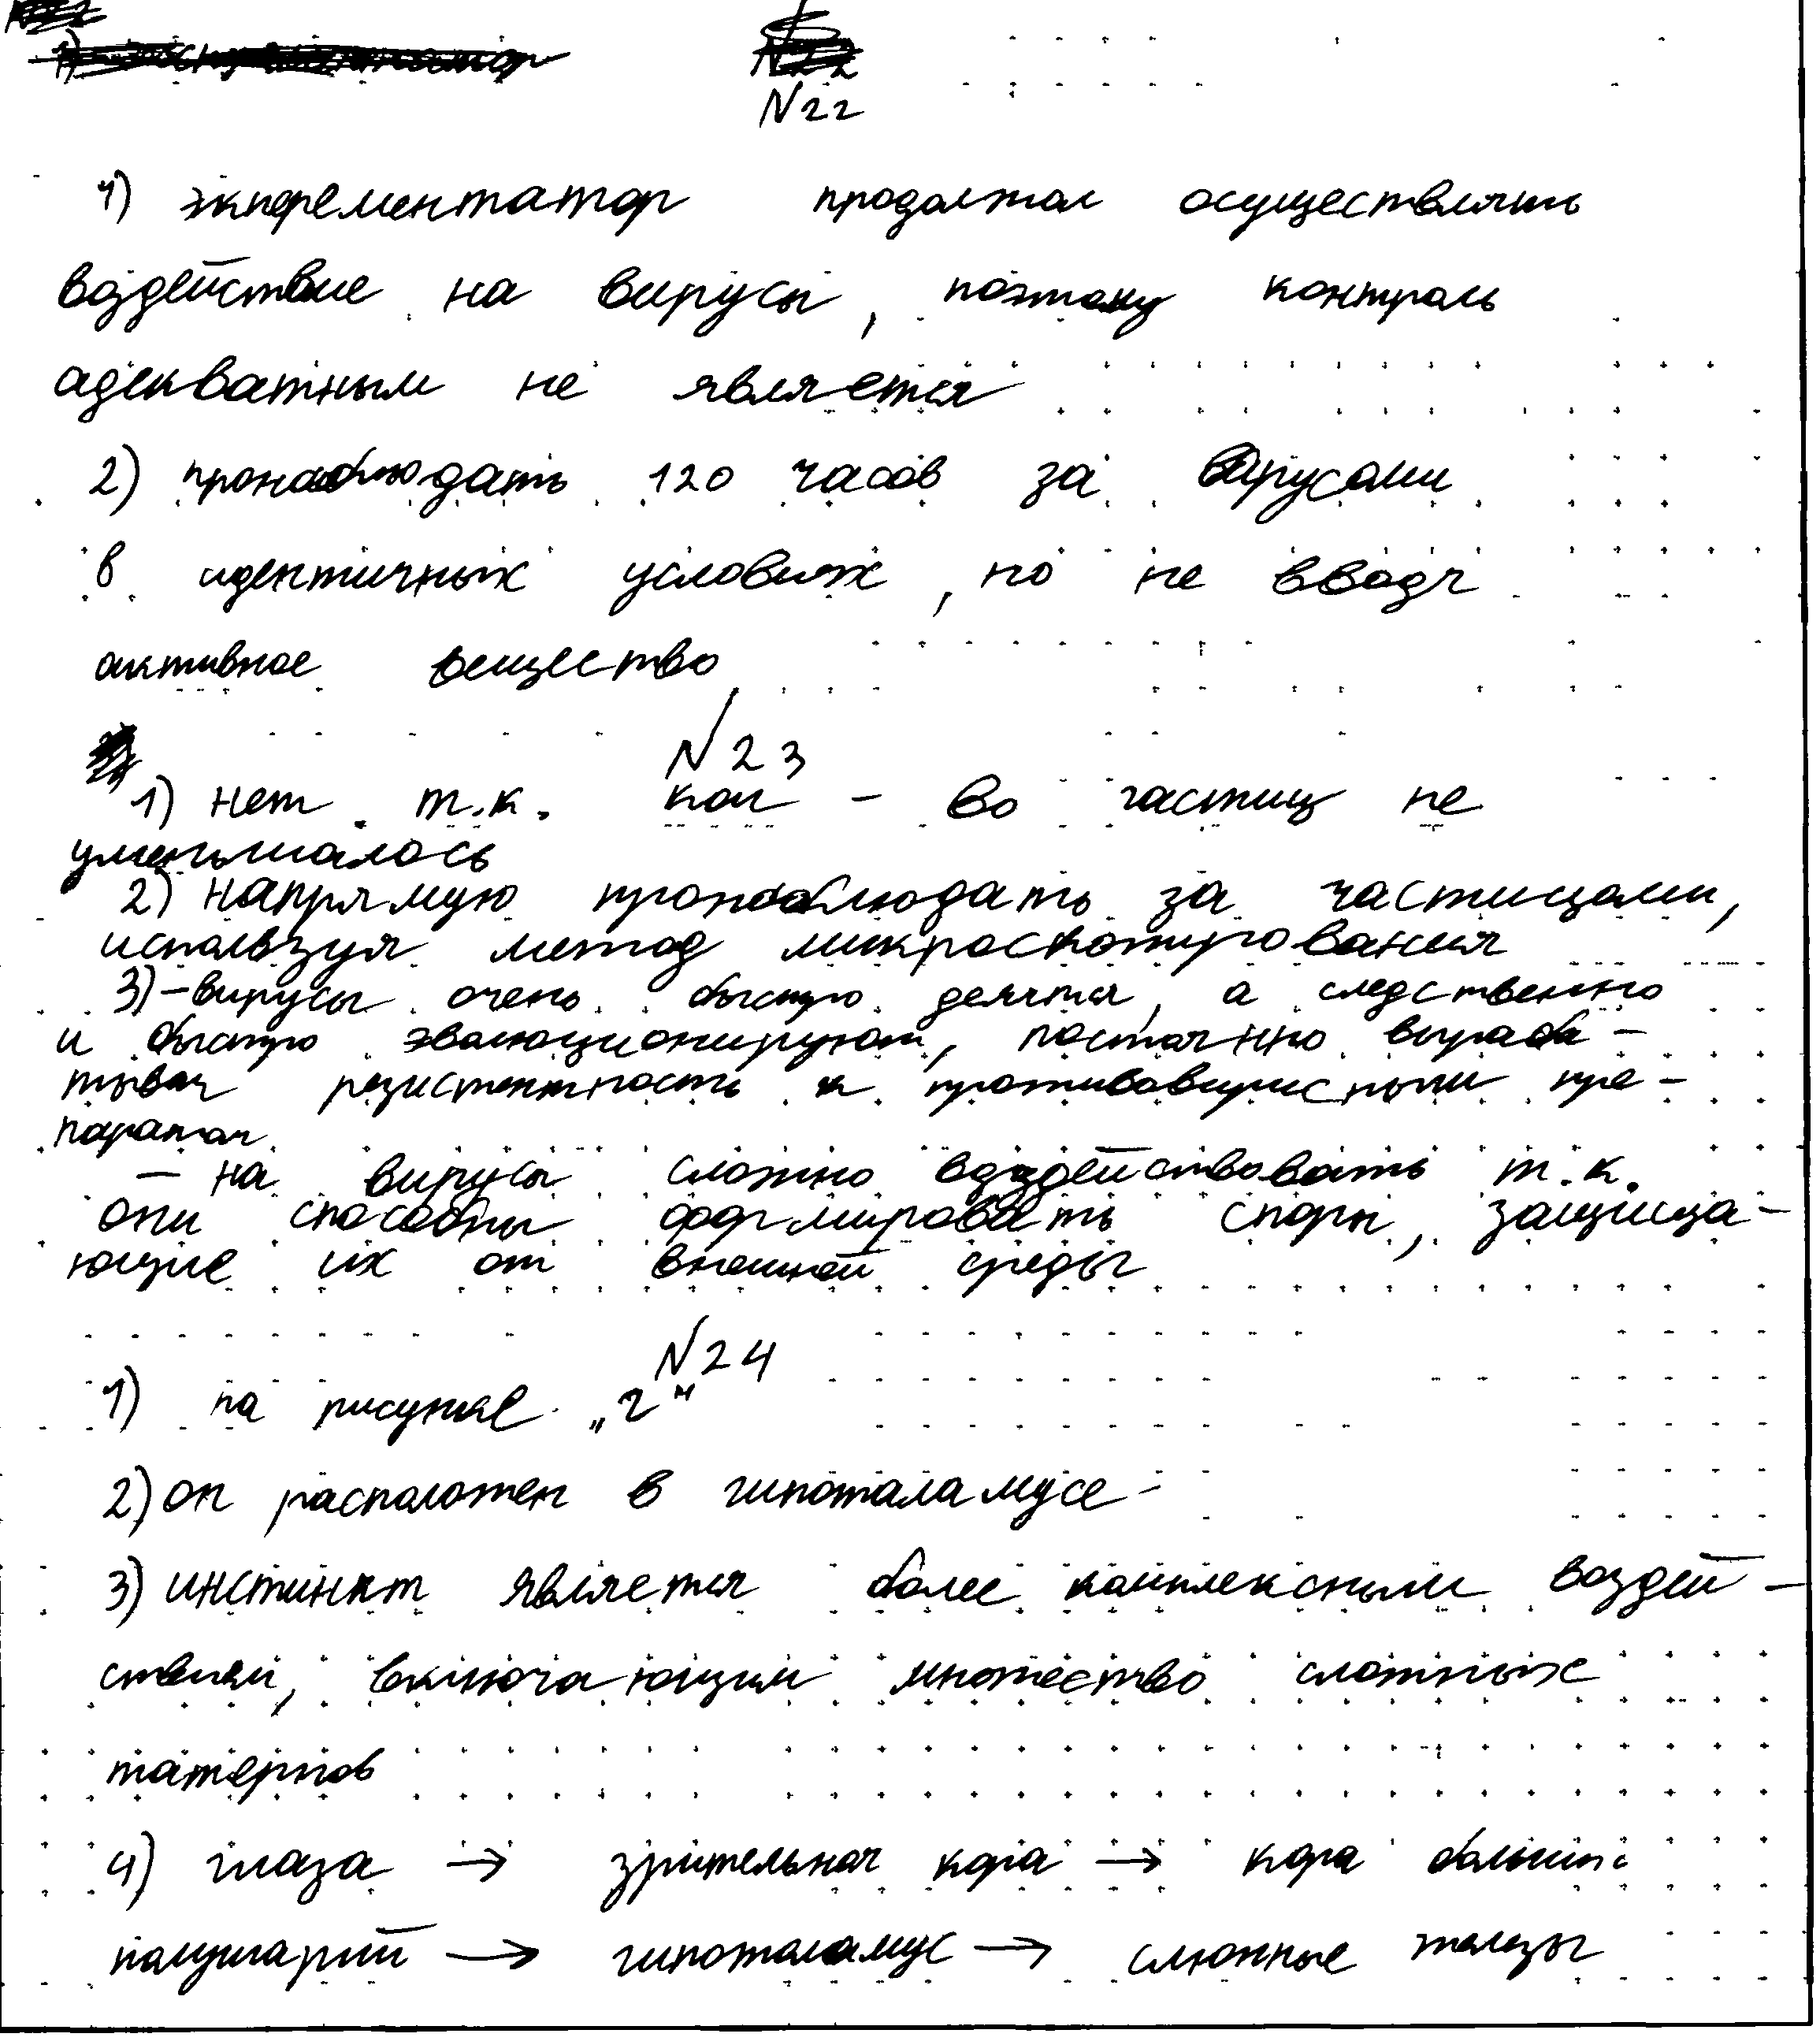 N22
1) экперементатор продолжал осуществлять
воздействие на вирусы, поэтому контроль
адекватным не является
2) пронаблюдать 120 часов за вирусами
в идентичных условиях, но не вводя
активное вещество
N23
1) нет т.к. кол-во частиц не
уменьшалось
2) напрямую пронаблюдать за частицами,
используя метод микроскопирования
3) - вирусы очень быстро делятся, а следственно
и быстро эволюционируют, постоянно вырабо-
тывая резистентность к противовирусными пре-
паратам
- на вирусы сложно воздействовать т.к.
они способны формировать споры, защища-
ющие их от внешней среды
N24
1) на рисунке „2"
2) он расположен в гипоталамусе
3) инстинкт является более комплексным воздей-
ствием, включающим множество сложных
паттернов
4) глаза → зрительная кора → кора больших
полушарий → гипоталамус → слюнные железы